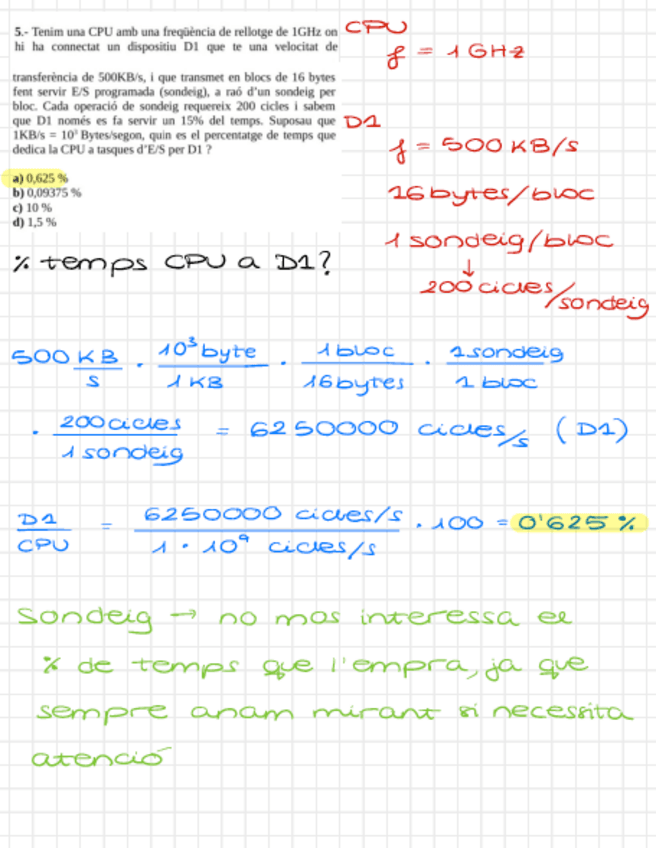 5.- Tenim una CPU amb una freqüència de rellotge de 1GHz on
hi ha connectat un dispositiu D1 que te una velocitat de
transferència de 500KB/s, i que transmet en blocs de 16 bytes
fent servir E/S programada (sondeig), a raó d'un sondeig per
bloc. Cada operació de sondeig requereix 200 cicles i sabem
que D1 només es fa servir un 15% del temps. Suposau que
1KB/s = 10³ Bytes/segon, quin es el percentatge de temps que
dedica la CPU a tasques d'E/S per D1 ?
a) 0,625 %
b) 0,09375 %
c) 10 %
d) 1,5 %
CPU
f = 1 GHz
D1
f = 500 KB/s
16 bytes/bloc
1 sondeig/bloc
↓
200 cicles/sondeig
% temps CPU a D1?
500 KB/s · 10³ byte/1 KB · 1 bloc/16 bytes · 1 sondeig/1 bloc
· 200 cicles/1 sondeig = 6250000 cicles/s (D1)
D1/CPU = 6250000 cicles/s / 1 · 10⁹ cicles/s · 100 = 0'625 %
Sondeig → no mos interessa el
% de temps que l'empra, ja que
sempre anam mirant si necessita
atenció